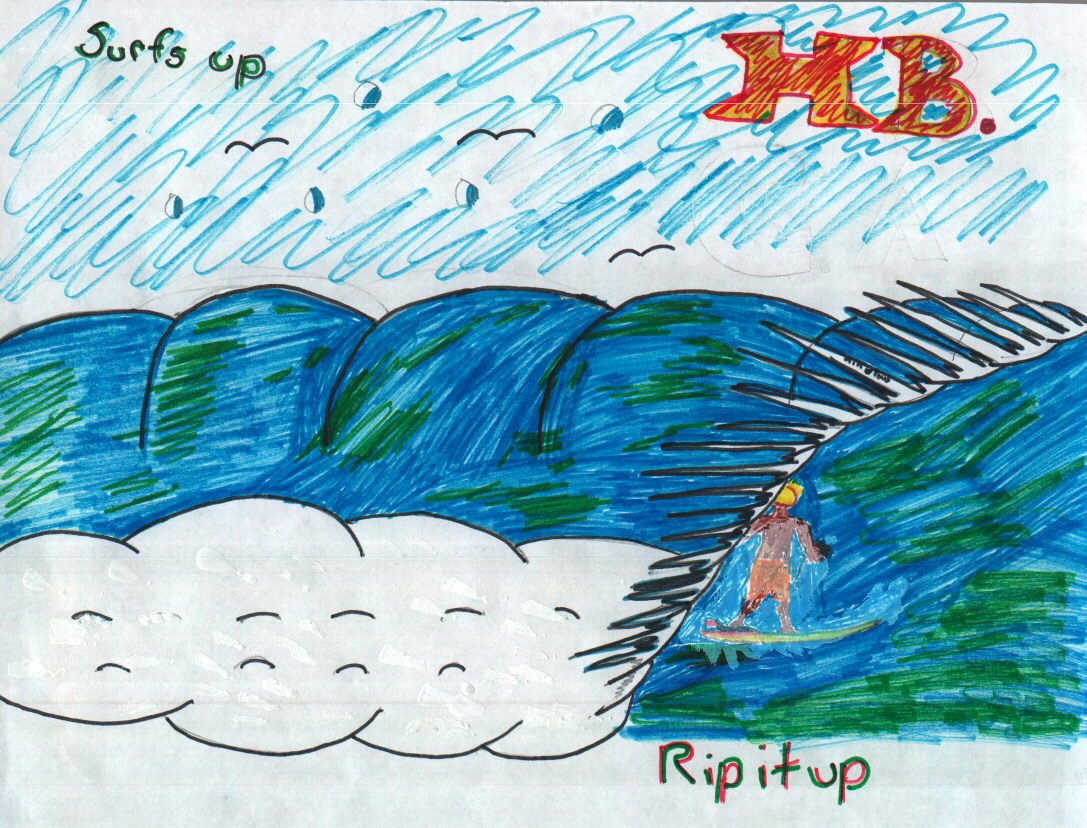 Surfs up
HB.
Rip it up